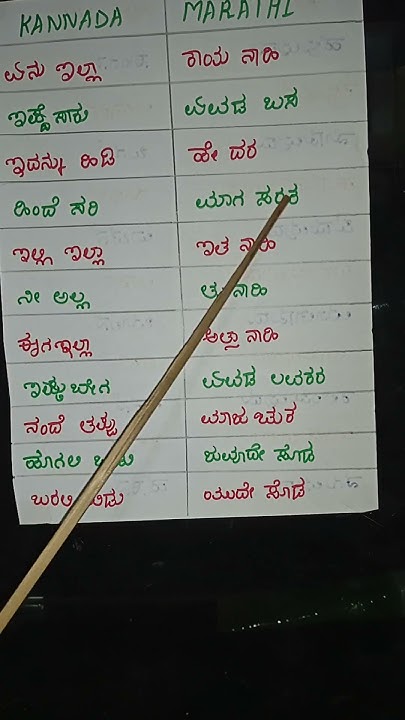 KANNADA MARATHI
ಏನು ಇಲ್ಲಾ ಕಾಯ ನಾಹಿ
ಇಷ್ಟೆ ಸಾಕು ಏವಡ ಬಸ
ಇದನ್ನು ಹಿಡಿ ಹೇ ದರ
ಹಿಂದೆ ಸರಿ ಮಾಗ ಸರಕ
ಇಲ್ಲಿ ಇಲ್ಲಾ ಇತ ನಾಹಿ
ನೀ ಅಲ್ಲ ತು ನಾಹಿ
ಈಗ ಇಲ್ಲಾ ಅತ್ತಾ ನಾಹಿ
ಇಷ್ಟು ಬೇಗ ಏವಡ ಲವಕರ
ನಂದೆ ತಪ್ಪು ಮಾಜ ಚುಕ
ಹೋಗಲಿ ಜಾವೂದೇ ಸೋಡ
ಬರಲಿ ಬಿಡು ಯುದೇ ಸೋಡ